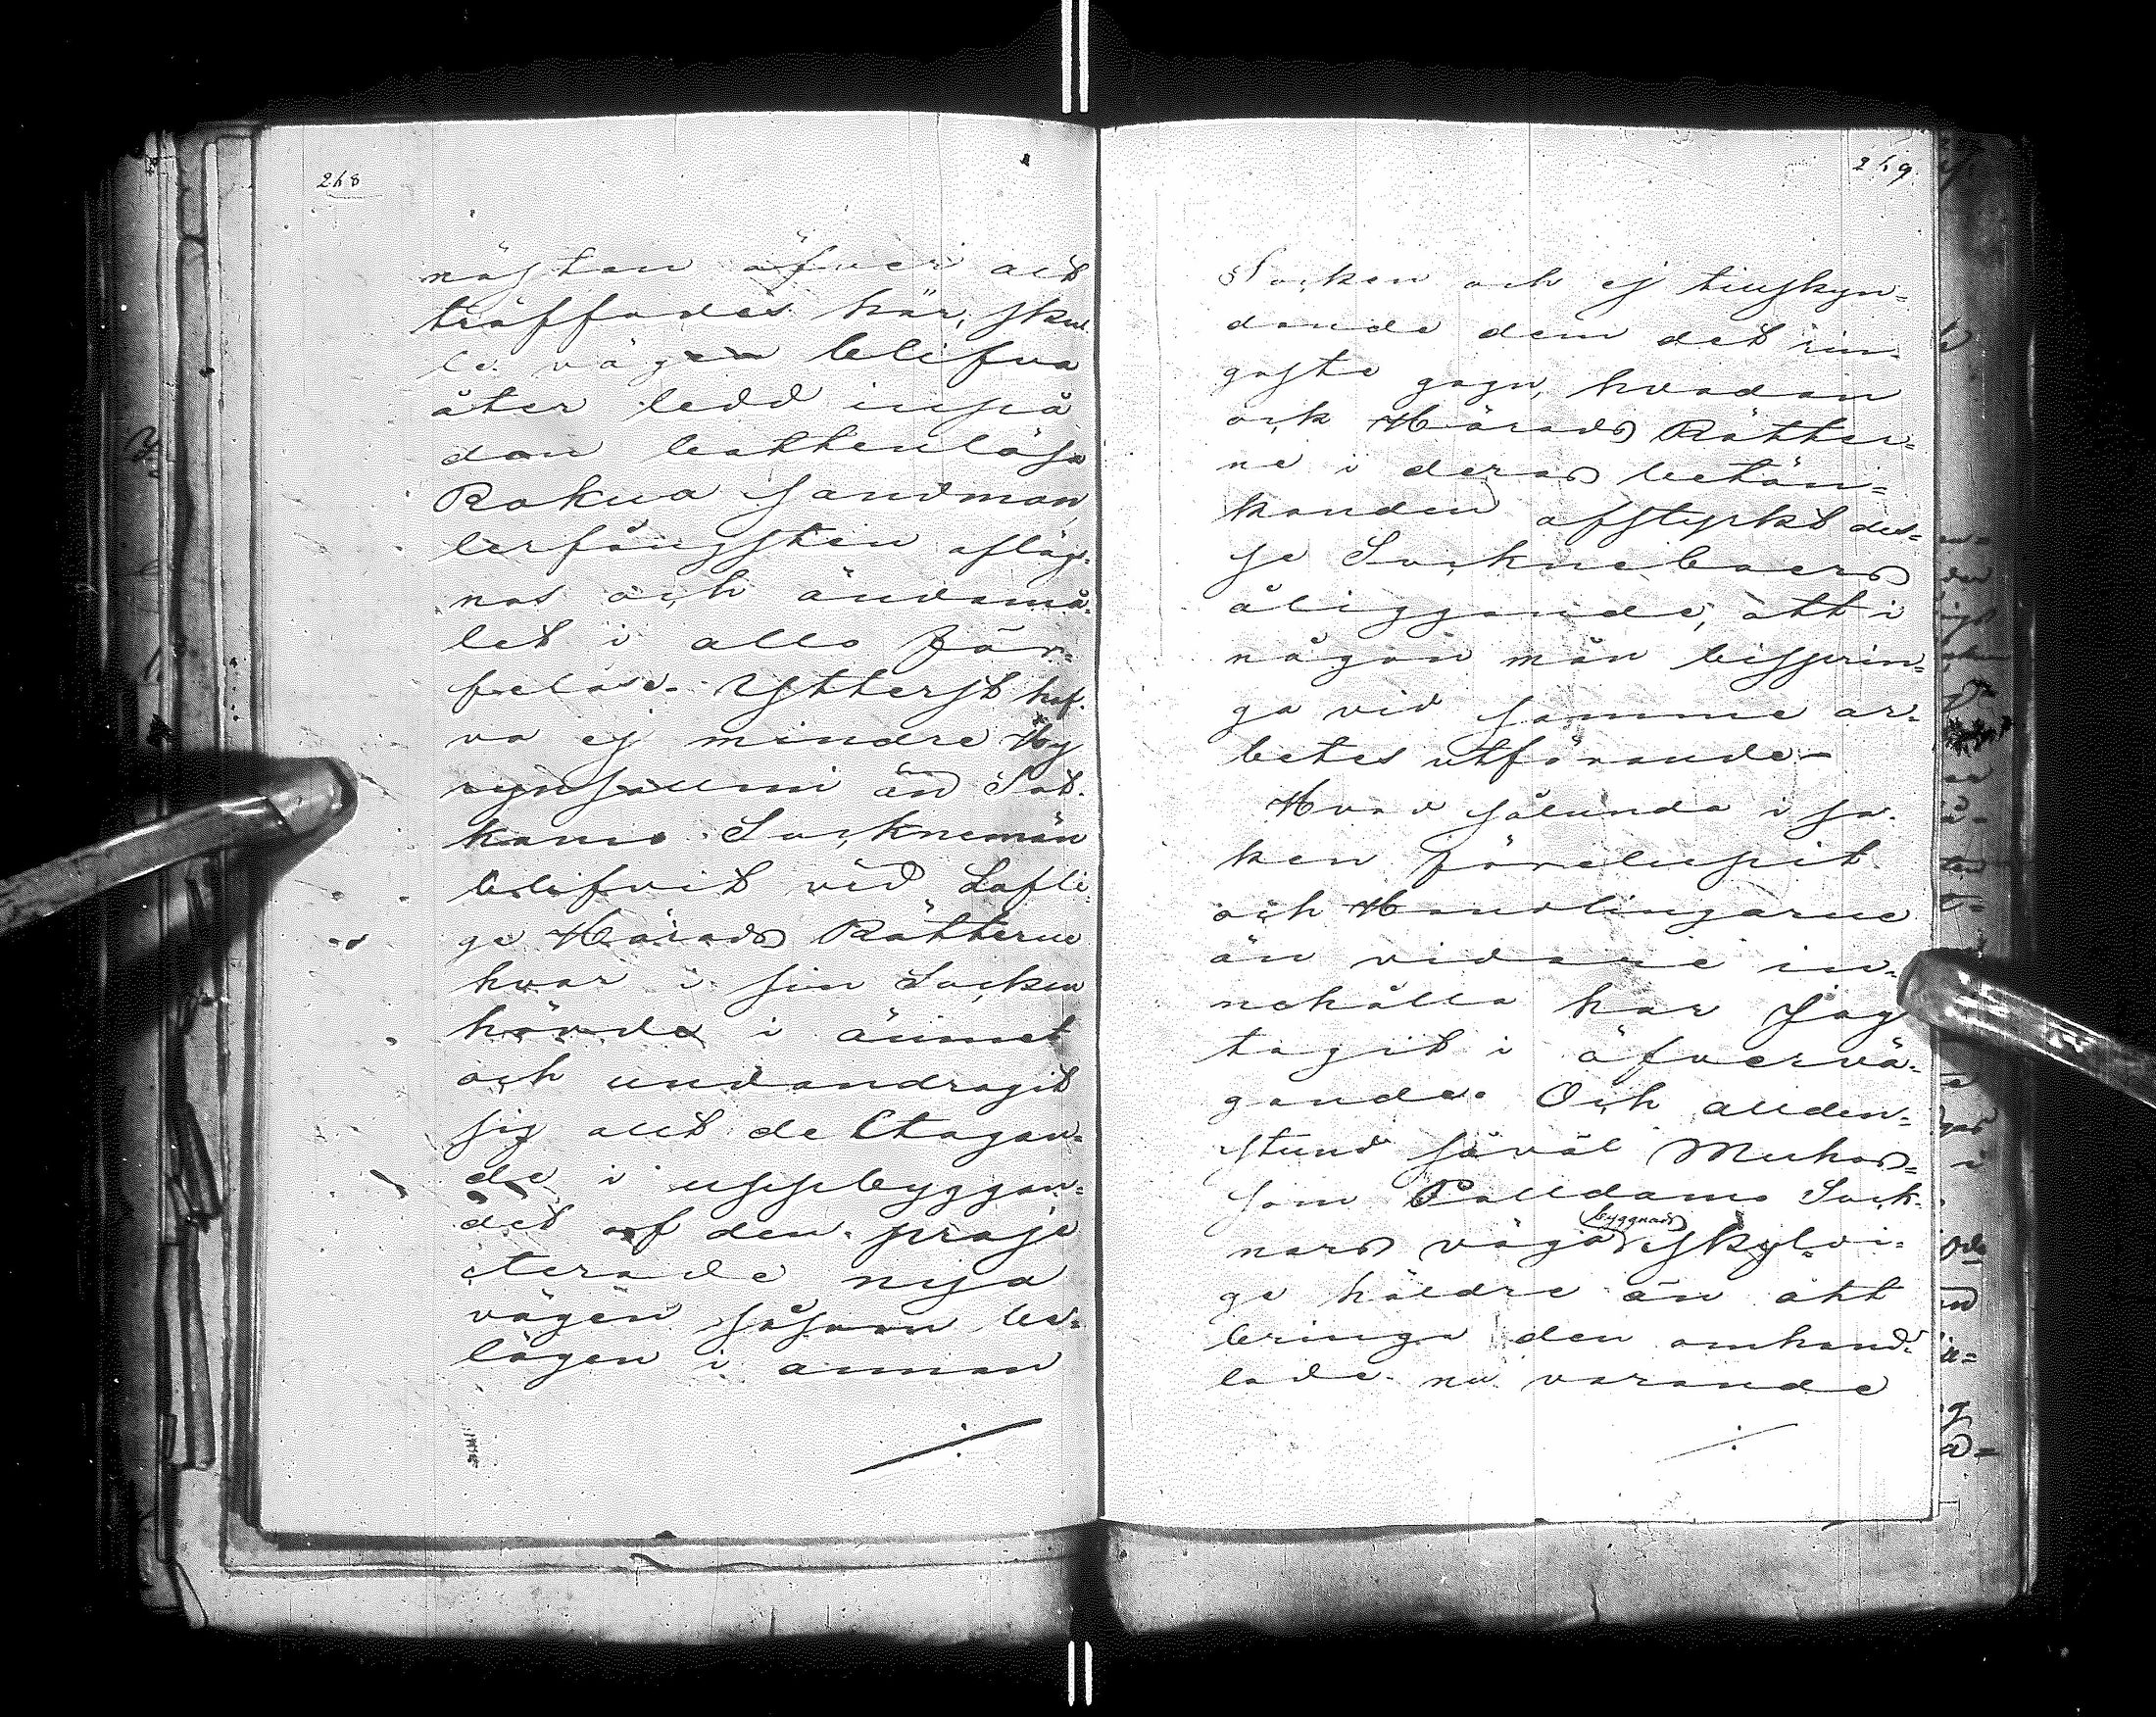 248
nästan öfver alt
träffades här, skul
le vägen blifva
åter ledd inpå
den bottenlösa
Rokua sandmon,
lerfångsten afläg-
nas och ändamå-
let i allo för-
felas. Ytterst haf-
va ej mindre Hy
rynsalmi än Sot-
kamo Socknemän
blifvit vid Lofli-
ge Härads Rätterne
hvar i sin Socken
hörde i ämnet
och undandragit
sig allt deltagan-
de i uppbyggan-
det af den proje
cterade nya
vägen såsom be-
lägen i annan
249.
Socken och ej tillskyn-
dande dem det rin-
gaste gagn, hvadan
ock Härads Rätter-
ne i deras betän-
kanden afstyrkt des-
se Sockneboers
åliggande, att i
någon mån bisprin-
ga vid samma ar-
betes utförande.—
Hvad sålunda i sa-
ken förelupit
och Handlingarne
än vidare in-
nehålla har Jag
tagit i öfvervä-
gande. Och allden-
stund såväl Muhos-
som Palldamo Sock-
byggnads
nars vägs skyldi-
ge håldre än att
bringa den omhand-
lade nu varande